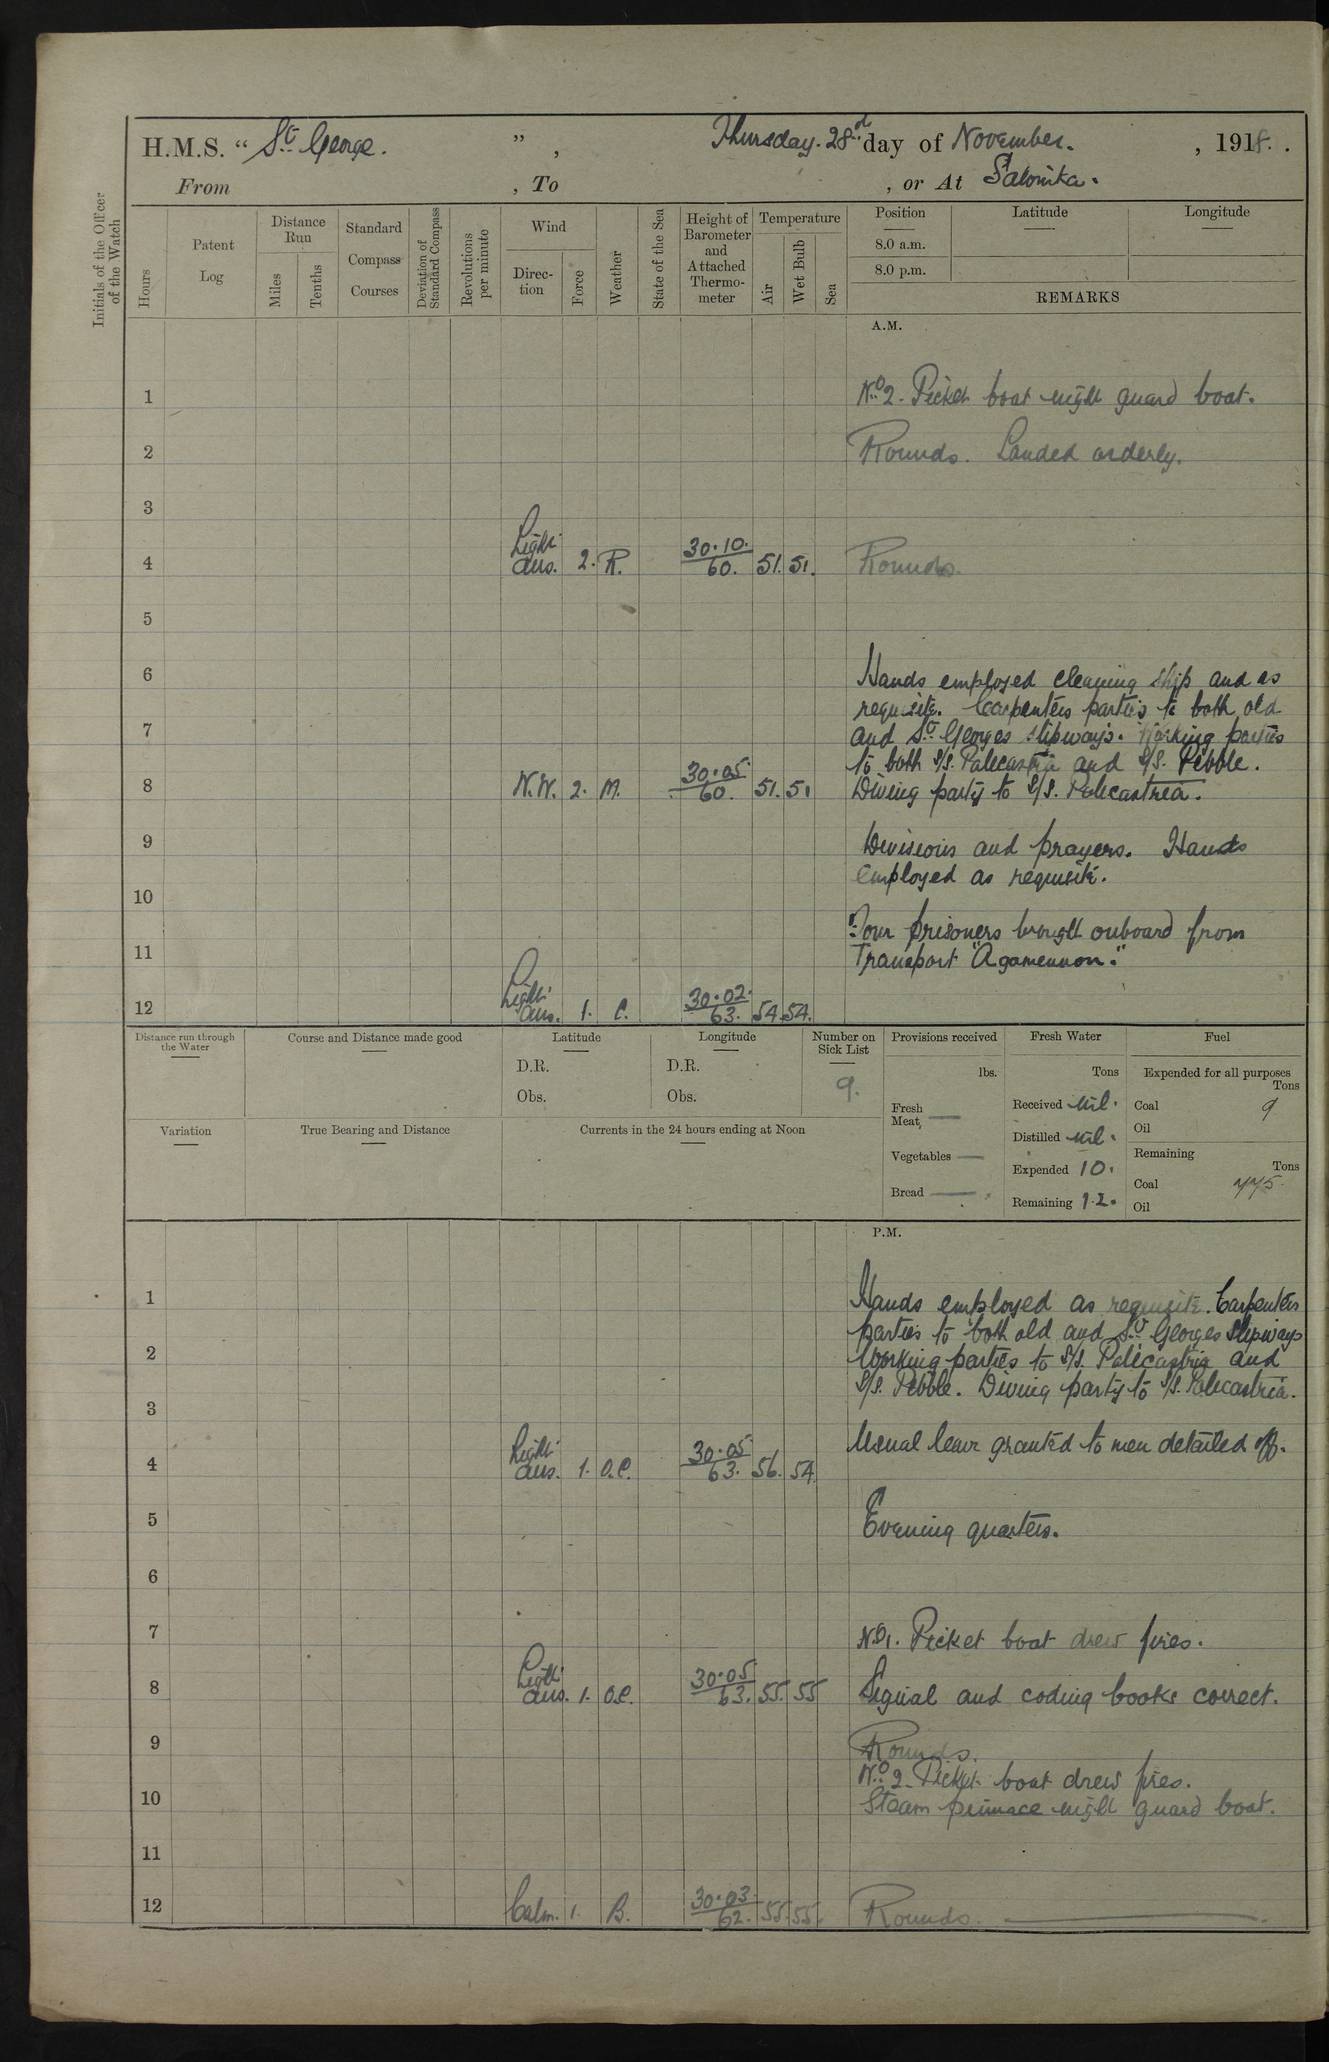 H.M.S. “ St. George. ” , Thursday. 28d day of November. , 1918. .
From , To , or At Salonika.
Initials of the Officer of the Watch
Hours
Patent Log
Distance Run
Miles
Tenths
Standard Compass Courses
Deviation of Standard Compass
Revolutions per minute
Wind
Direction
Force
Weather
State of the Sea
Height of Barometer and Attached Thermometer
Temperature
Air
Wet Bulb
Sea
Position Latitude Longitude
8.0 a.m.
8.0 p.m.
REMARKS
A.M.
1 No. 2. Picket boat night guard boat.
2 Rounds. Landed orderly.
3
4 Light airs. 2. R. 30.10. 60. 51. 51. Rounds.
5
6 Hands employed cleaning ship and as
requisite. Carpenters parties to both old
7 and St. Georges slipways. Working parties
to both S/S. Palecastria and S/S. Pebble.
8 N.W. 2. M. 30.05 60. 51. 51 Diving party to S/S. Palecastria.
9 Divisions and prayers. Hands
employed as requisite.
10
Four prisoners brought onboard from
11 Transport "Agamemnon."
12 Light airs. 1. C. 30.02. 63. 54. 54.
Distance run through the Water
Course and Distance made good
Latitude
D.R.
Obs.
Longitude
D.R.
Obs.
Number on Sick List
9.
Variation
True Bearing and Distance
Currents in the 24 hours ending at Noon
Provisions received
lbs.
Fresh Meat,
Vegetables
Bread
Fresh Water
Tons
Received nil.
Distilled nil.
Expended 10.
Remaining 12.
Fuel
Expended for all purposes
Tons
Coal 9
Oil
Remaining
Tons
Coal 775.
Oil
P.M.
1 Hands employed as requisite. Carpenters
parties to both old and St. Georges slipways
2 Working parties to S/S. Palecastria and
S/S. Pebble. Diving party to S/S. Palecastria.
3
Usual leave granted to men detailed off.
4 Light airs. 1. O.C. 30.05 63. 56. 54.
5 Evening quarters.
6
7 No. 1. Picket boat drew fires.
8 Light airs. 1. O.C. 30.05 63. 55. 55 Signal and coding books correct.
9 Rounds.
No. 2. Picket boat drew fires.
10 Steam pinnace night guard boat.
11
12 Calm. 1. B. 30.03. 62. 55. 55. Rounds.